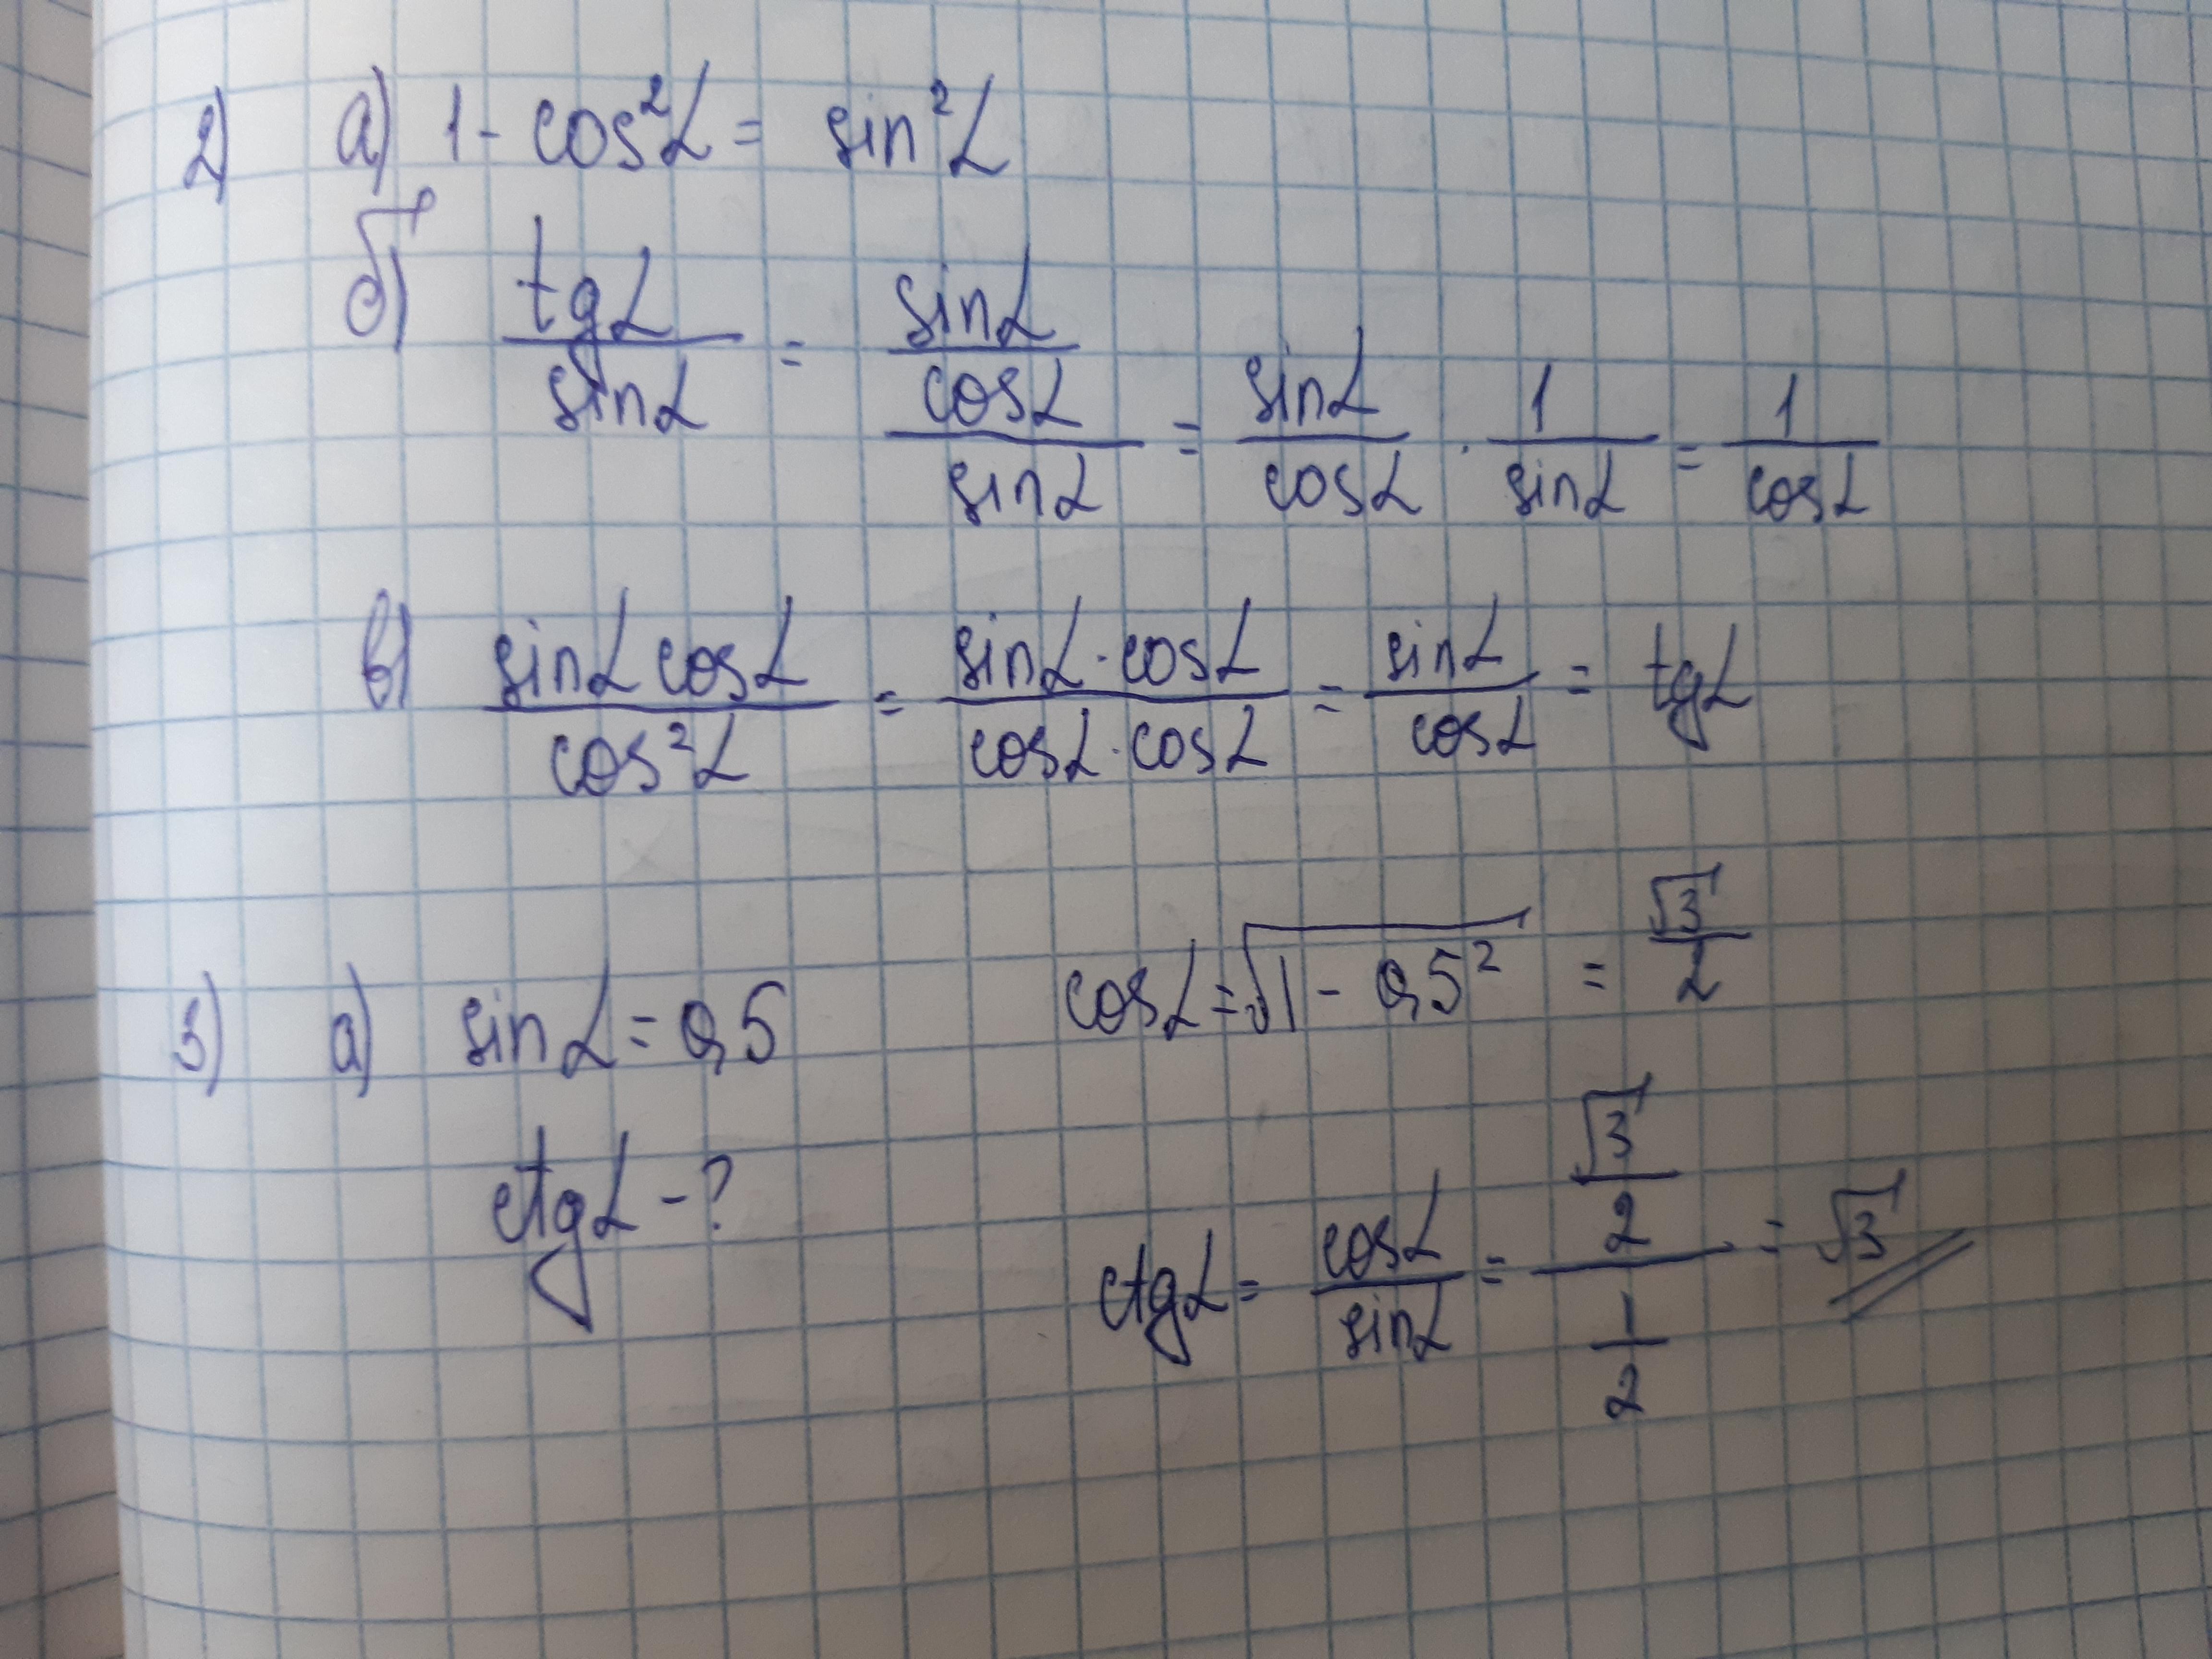 2) а) 1 - cos²α = sin²α
б) tgα / sinα = (sinα / cosα) / sinα = sinα / cosα · 1 / sinα = 1 / cosα
в) sinα cosα / cos²α = sinα · cosα / cosα · cosα = sinα / cosα = tgα
3) а) sinα = 0,5 cosα = √(1 - 0,5²) = √3 / 2
ctgα - ? ctgα = cosα / sinα = (√3 / 2) / (1 / 2) = √3